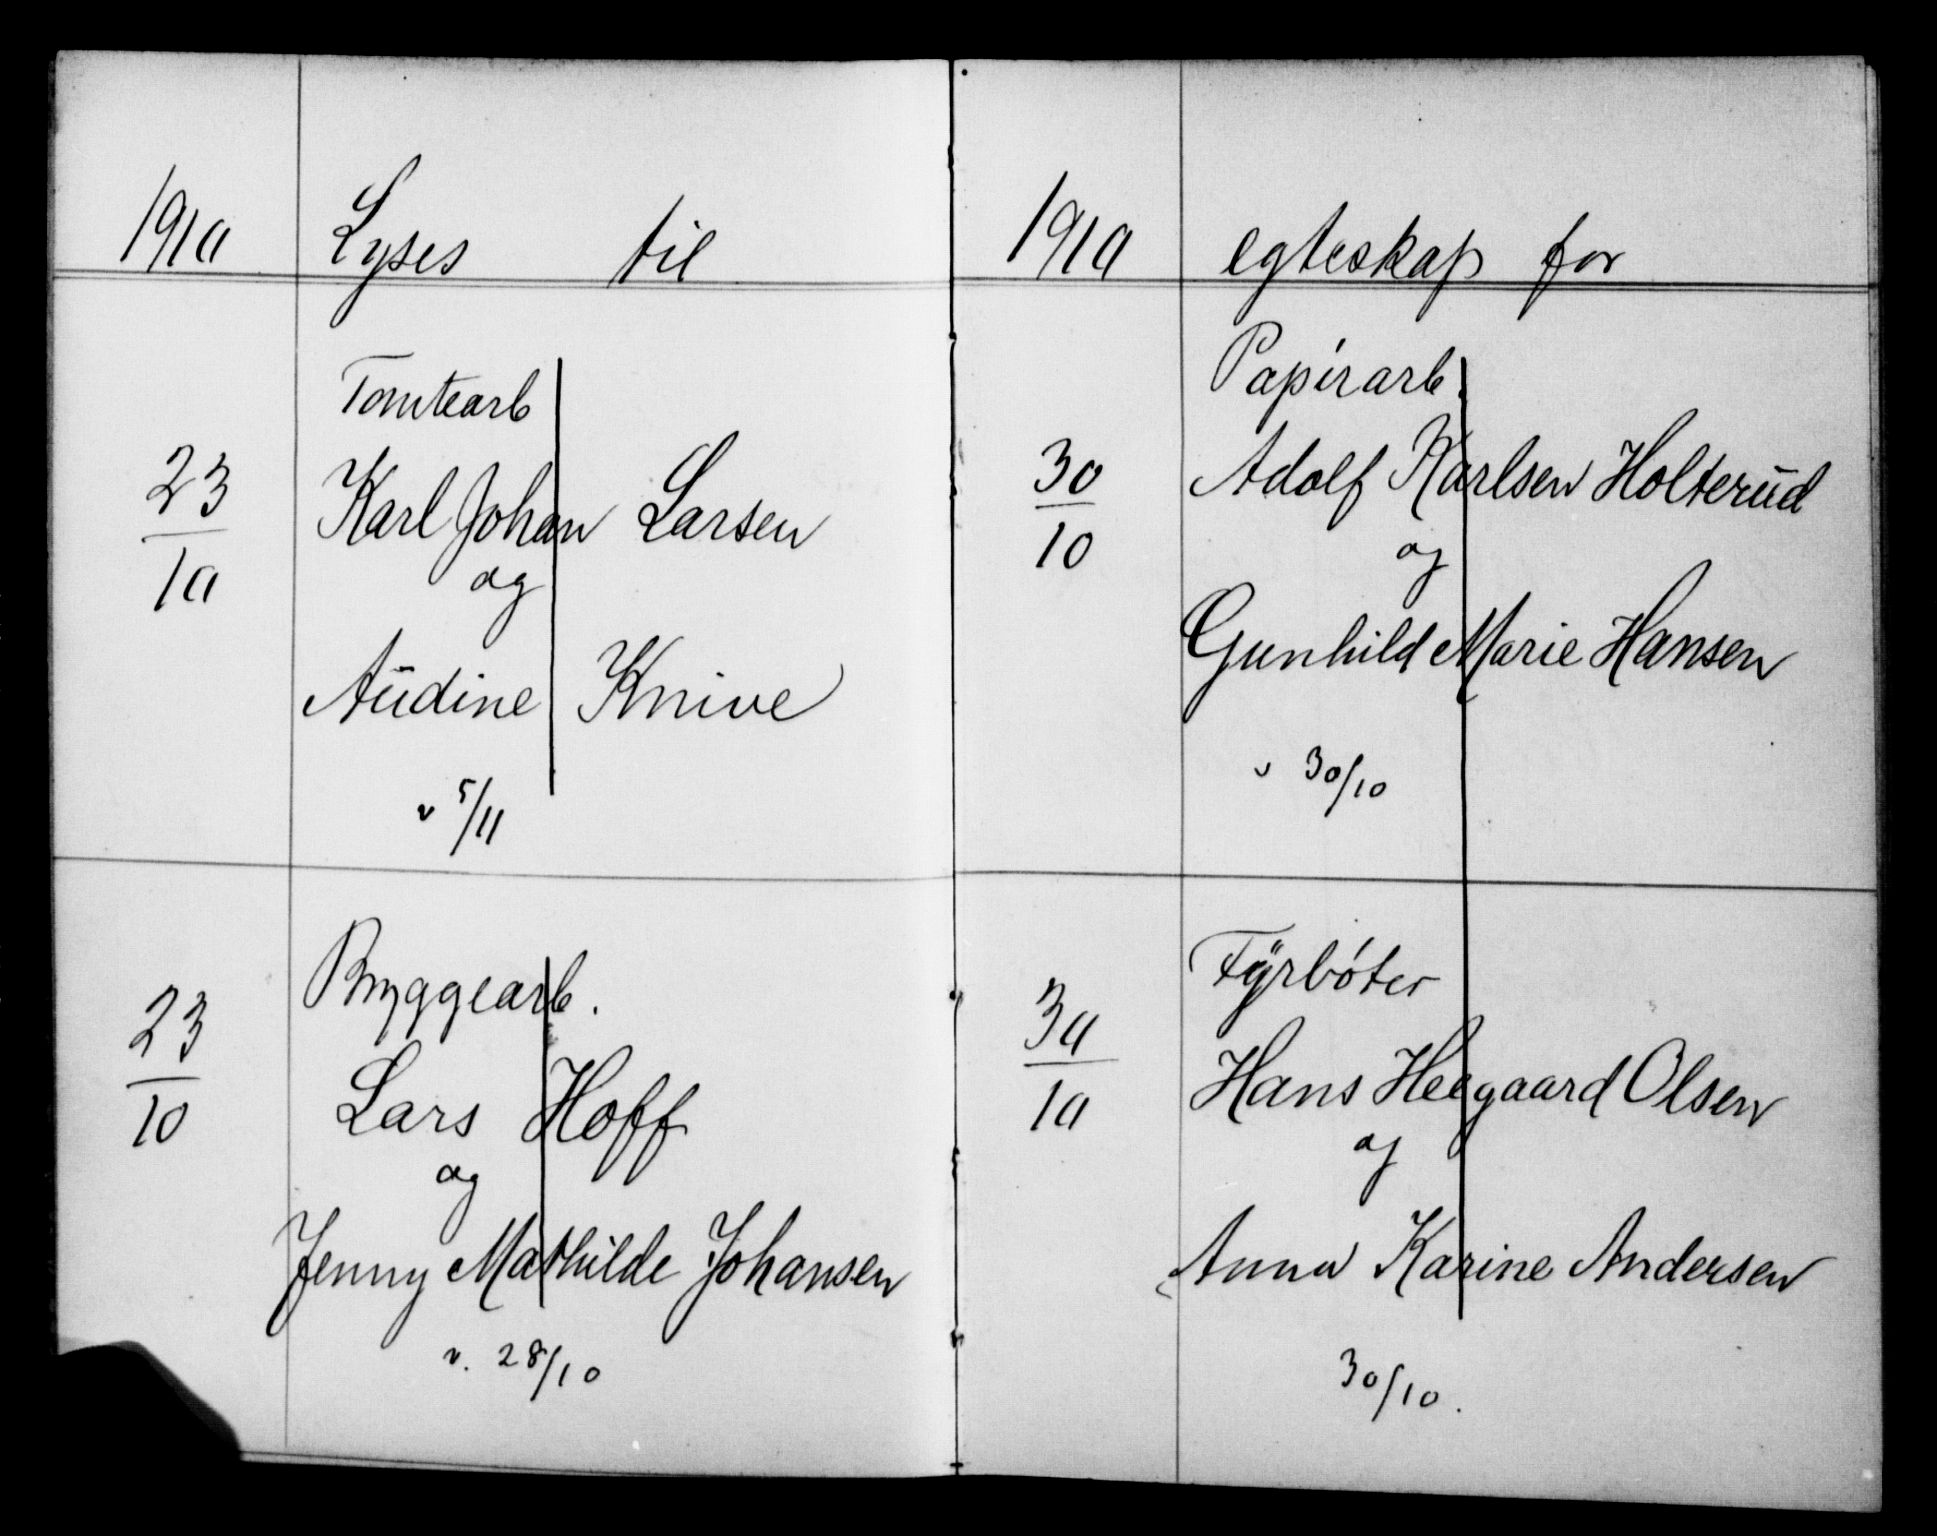 1910 Lyses til
Tomtearb
23/10 Karl Johan Larsen
og
Audine Knive
v 5/11
Bryggearb.
23/10 Lars Hoff
og
Jenny Mathilde Johansen
v. 28/10
1910 egteskap for
Papirarb.
30/10 Adolf Karlsen Holterud
og
Gunhild Marie Hansen
v 30/10
Fyrbøter
30/10 Hans Heegaard Olsen
og
Anna Karine Andersen
30/10.